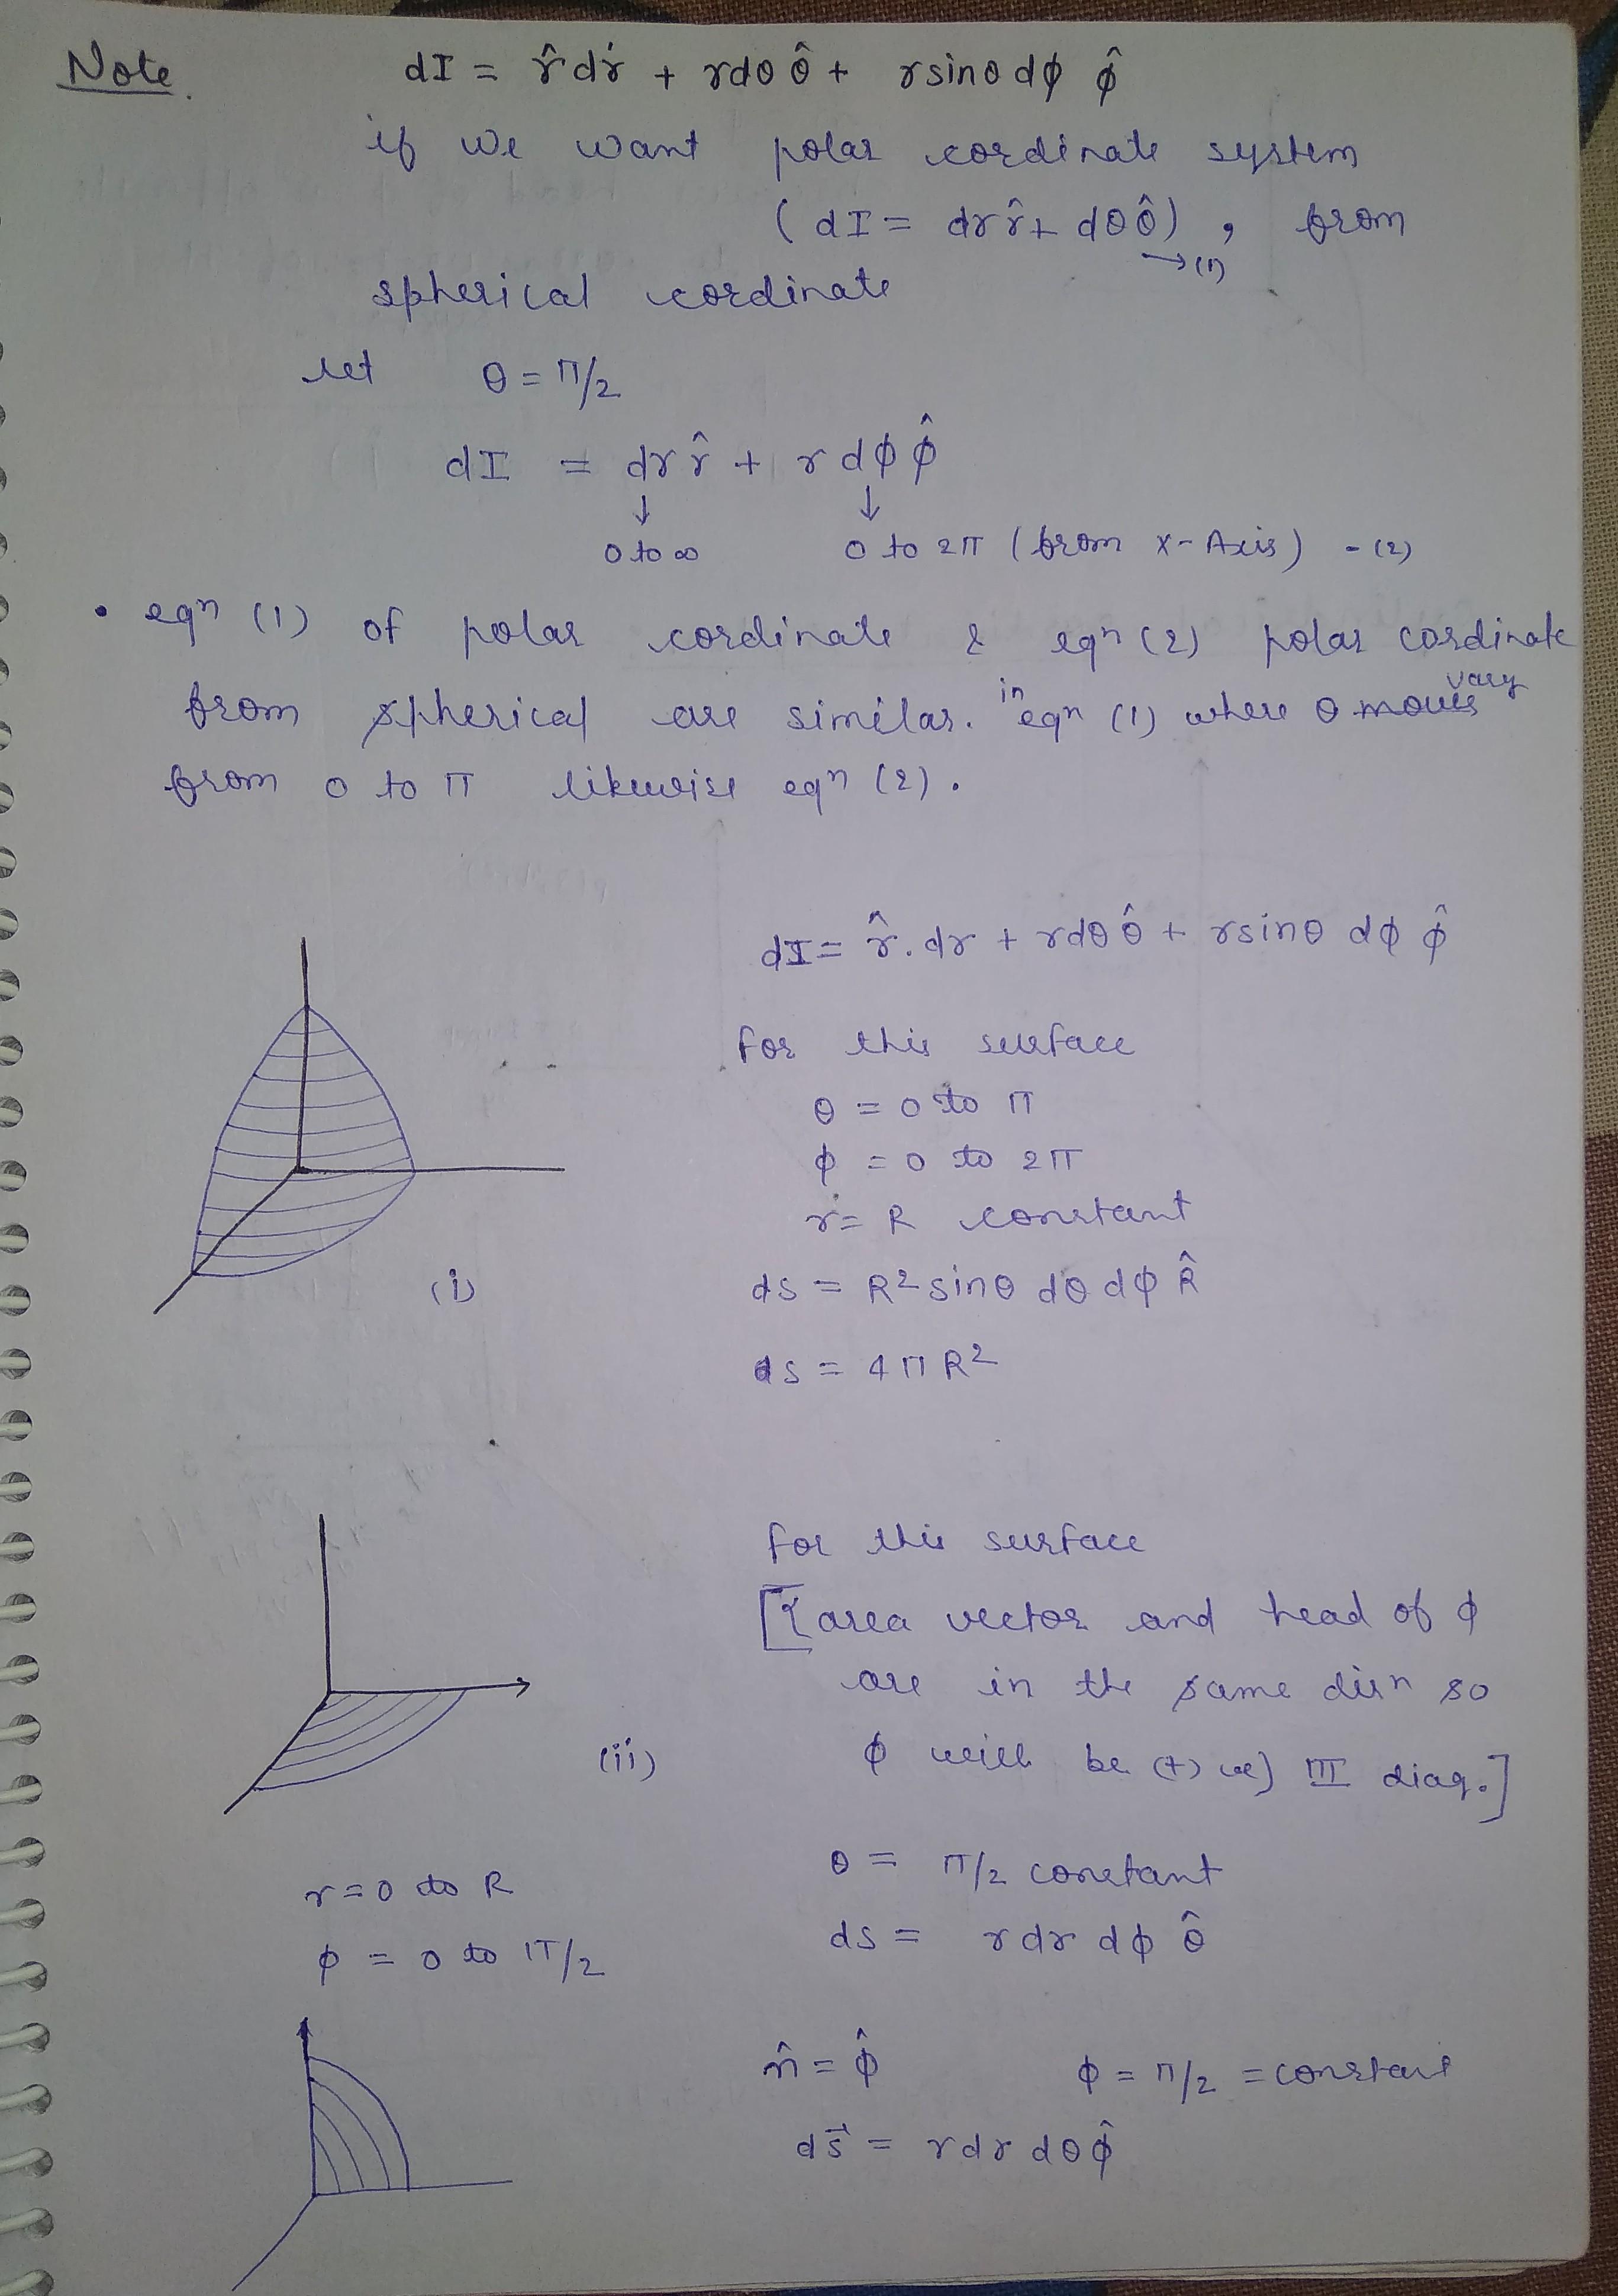 Note. dI = r̂ dr + rdθ θ̂ + rsinθ dϕ ϕ̂
if we want polar cordinate system
( dI = dr r̂ + dθ θ̂ ) , from
→ (1)
spherical cordinate
let θ = π/2
dI = dr r̂ + r dϕ ϕ̂
↓ ↓
0 to ∞ 0 to 2π (from x-Axis) - (2)
• eqn (1) of polar cordinate & eqn (2) polar cordinate
from spherical are similar. in eqn (1) where θ moves vary
from 0 to π likewise eqn (2).
dI = r̂. dr + rdθ θ̂ + rsinθ dϕ ϕ̂
For this surface
θ = 0 to π
ϕ = 0 to 2π
r = R constant
(i)
ds = R² sinθ dθ dϕ R̂
ds = 4πR²
For this surface
[{area vector and head of ϕ
are in the same dirn so
ϕ will be (+) ve} III diag.]
(ii)
r = 0 to R
θ = π/2 constant
ϕ = 0 to π/2
ds = rdr dϕ θ̂
n̂ = ϕ̂ ϕ = π/2 = constant
ds⃗ = rdr dθ ϕ̂